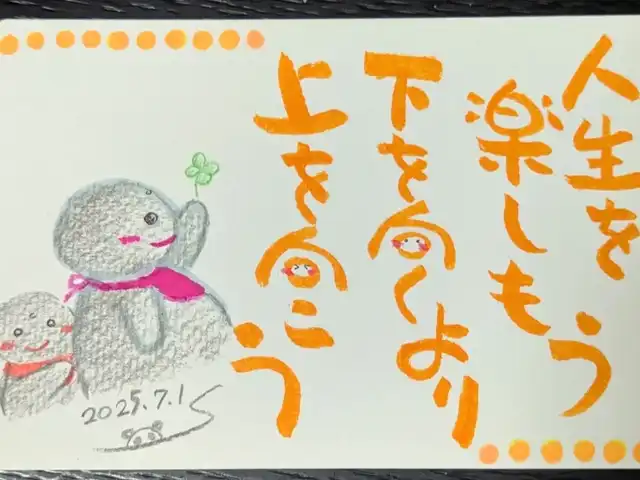 人生を
楽しもう
下を向くより
上を向こう
2025.7.15